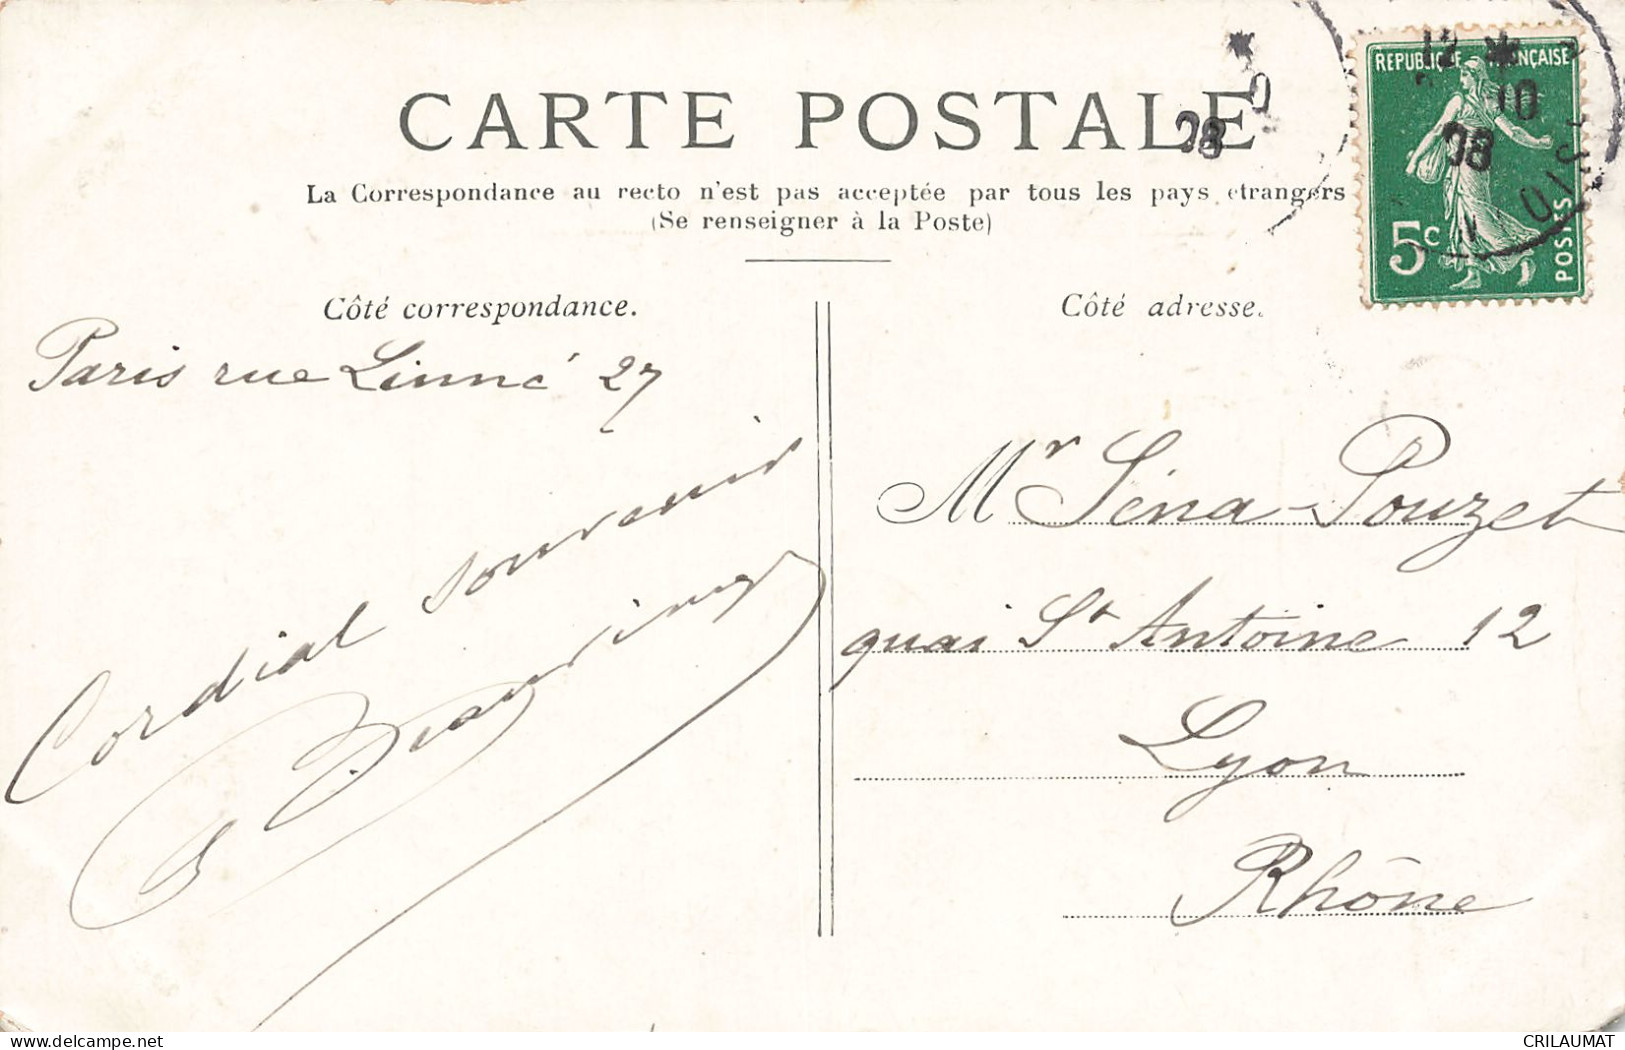 CARTE POSTALE
La Correspondance au recto n'est pas acceptée par tous les pays étrangers
(Se renseigner à la Poste)
REPUBLIQUE FRANÇAISE
5c
POSTES
12
10
08
08
Côté correspondance.
Paris rue Linné 27
Cordial souvenir
Côté adresse.
Mr Séna-Pouzet
quai St Antoine 12
Lyon
Rhône
CRILAUMAT